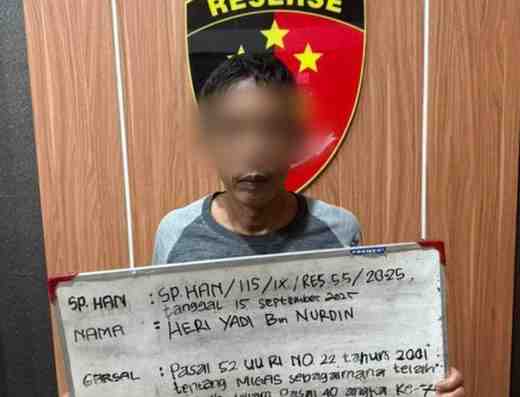 RESERSE
SP. HAN : SP. HAN/115/IX/RES 5.5/2025,
tanggal 15 september 2025
NAMA : HERI YADI Bin NURDIN
PASAL : Pasal 52 UU RI NO 22 tahun 2001
tentang MIGAS sebagaimana telah
dalam Pasal 40 angka Ke-7